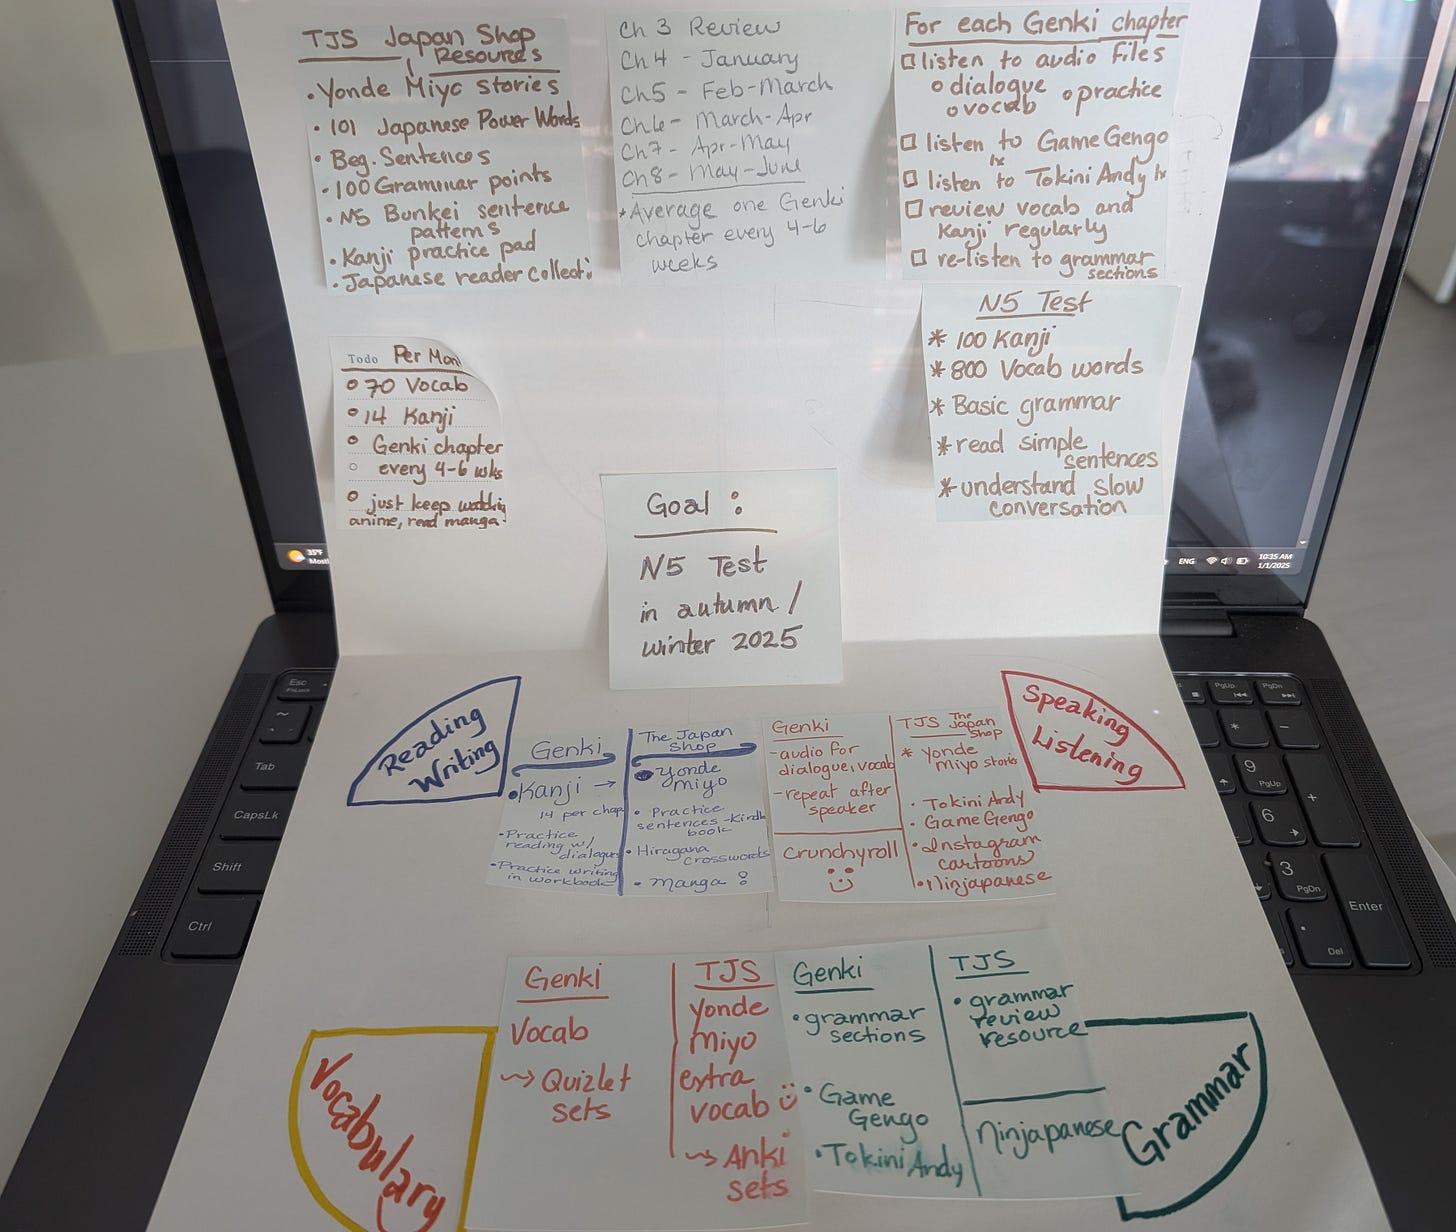 TJS Japan Shop
Resources
• Yonde Miyo stories
• 101 Japanese Power Words
• Beg. Sentences
• 100 Grammar points
• N5 Bunkei sentence
patterns
• Kanji practice pad
• Japanese reader collecti
Ch 3 Review
Ch 4 - January
Ch5 - Feb-March
Ch6 - March-Apr
Ch7 - Apr-May
Ch8 - May-June
*Average one Genki
chapter every 4-6
weeks
For each Genki chapter
□ listen to audio files
o dialogue
o vocab o practice
□ listen to GameGengo
1x
□ listen to Tokini Andy 1x
□ review vocab and
Kanji regularly
□ re-listen to grammar
sections
Todo Per Mon
o 70 Vocab
o 14 Kanji
o Genki chapter
o every 4-6 wks
o just keep watching
anime, read manga!
N5 Test
* 100 Kanji
* 800 Vocab words
* Basic grammar
* read simple
sentences
* understand slow
conversation
Goal :
N5 Test
in autumn /
winter 2025
35°F
Mostl
ENG
10:35 AM
1/1/2025
Reading
Writing
Genki
• Kanji →
14 per chap
• Practice
reading w/
dialogues
• Practice writing
in workbook
The Japan
Shop
• Yonde
miyo
• Practice
sentences - Kindle
book
• Hiragana
crosswords
• Manga :
Genki
- audio for
dialogue, vocab
- repeat after
speaker
Crunchyroll
TJS The Japan
Shop
* Yonde
miyo stories
• Tokini Andy
• Game Gengo
• Instagram
cartoons
• Ninjapanese
Speaking
Listening
Vocabulary
Genki
Vocab
~> Quizlet
sets
TJS
Yonde
Miyo
extra
vocab
~> Anki
sets
Genki
• grammar
sections
• Game
Gengo
• Tokini Andy
TJS
• grammar
review
resource
Ninjapanese
Grammar
Esc
FnLock
~
Tab
CapsLk
Shift
Ctrl
PgUp
PgDn
*
-
9
PgUp
+
6
3
PgDn
Enter
.
Del